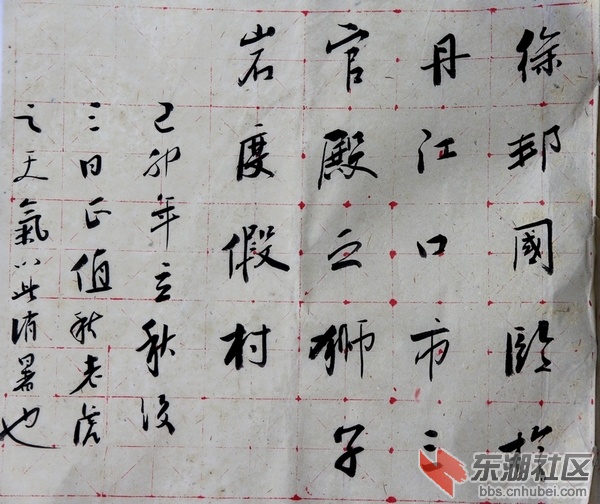 徐邦國臨於
丹江口市三
官殿之獅子
岩度假村
己卯年立秋後
三日正值秋老虎
之天氣以此消暑也
东湖社区
bbs.cnhubei.com